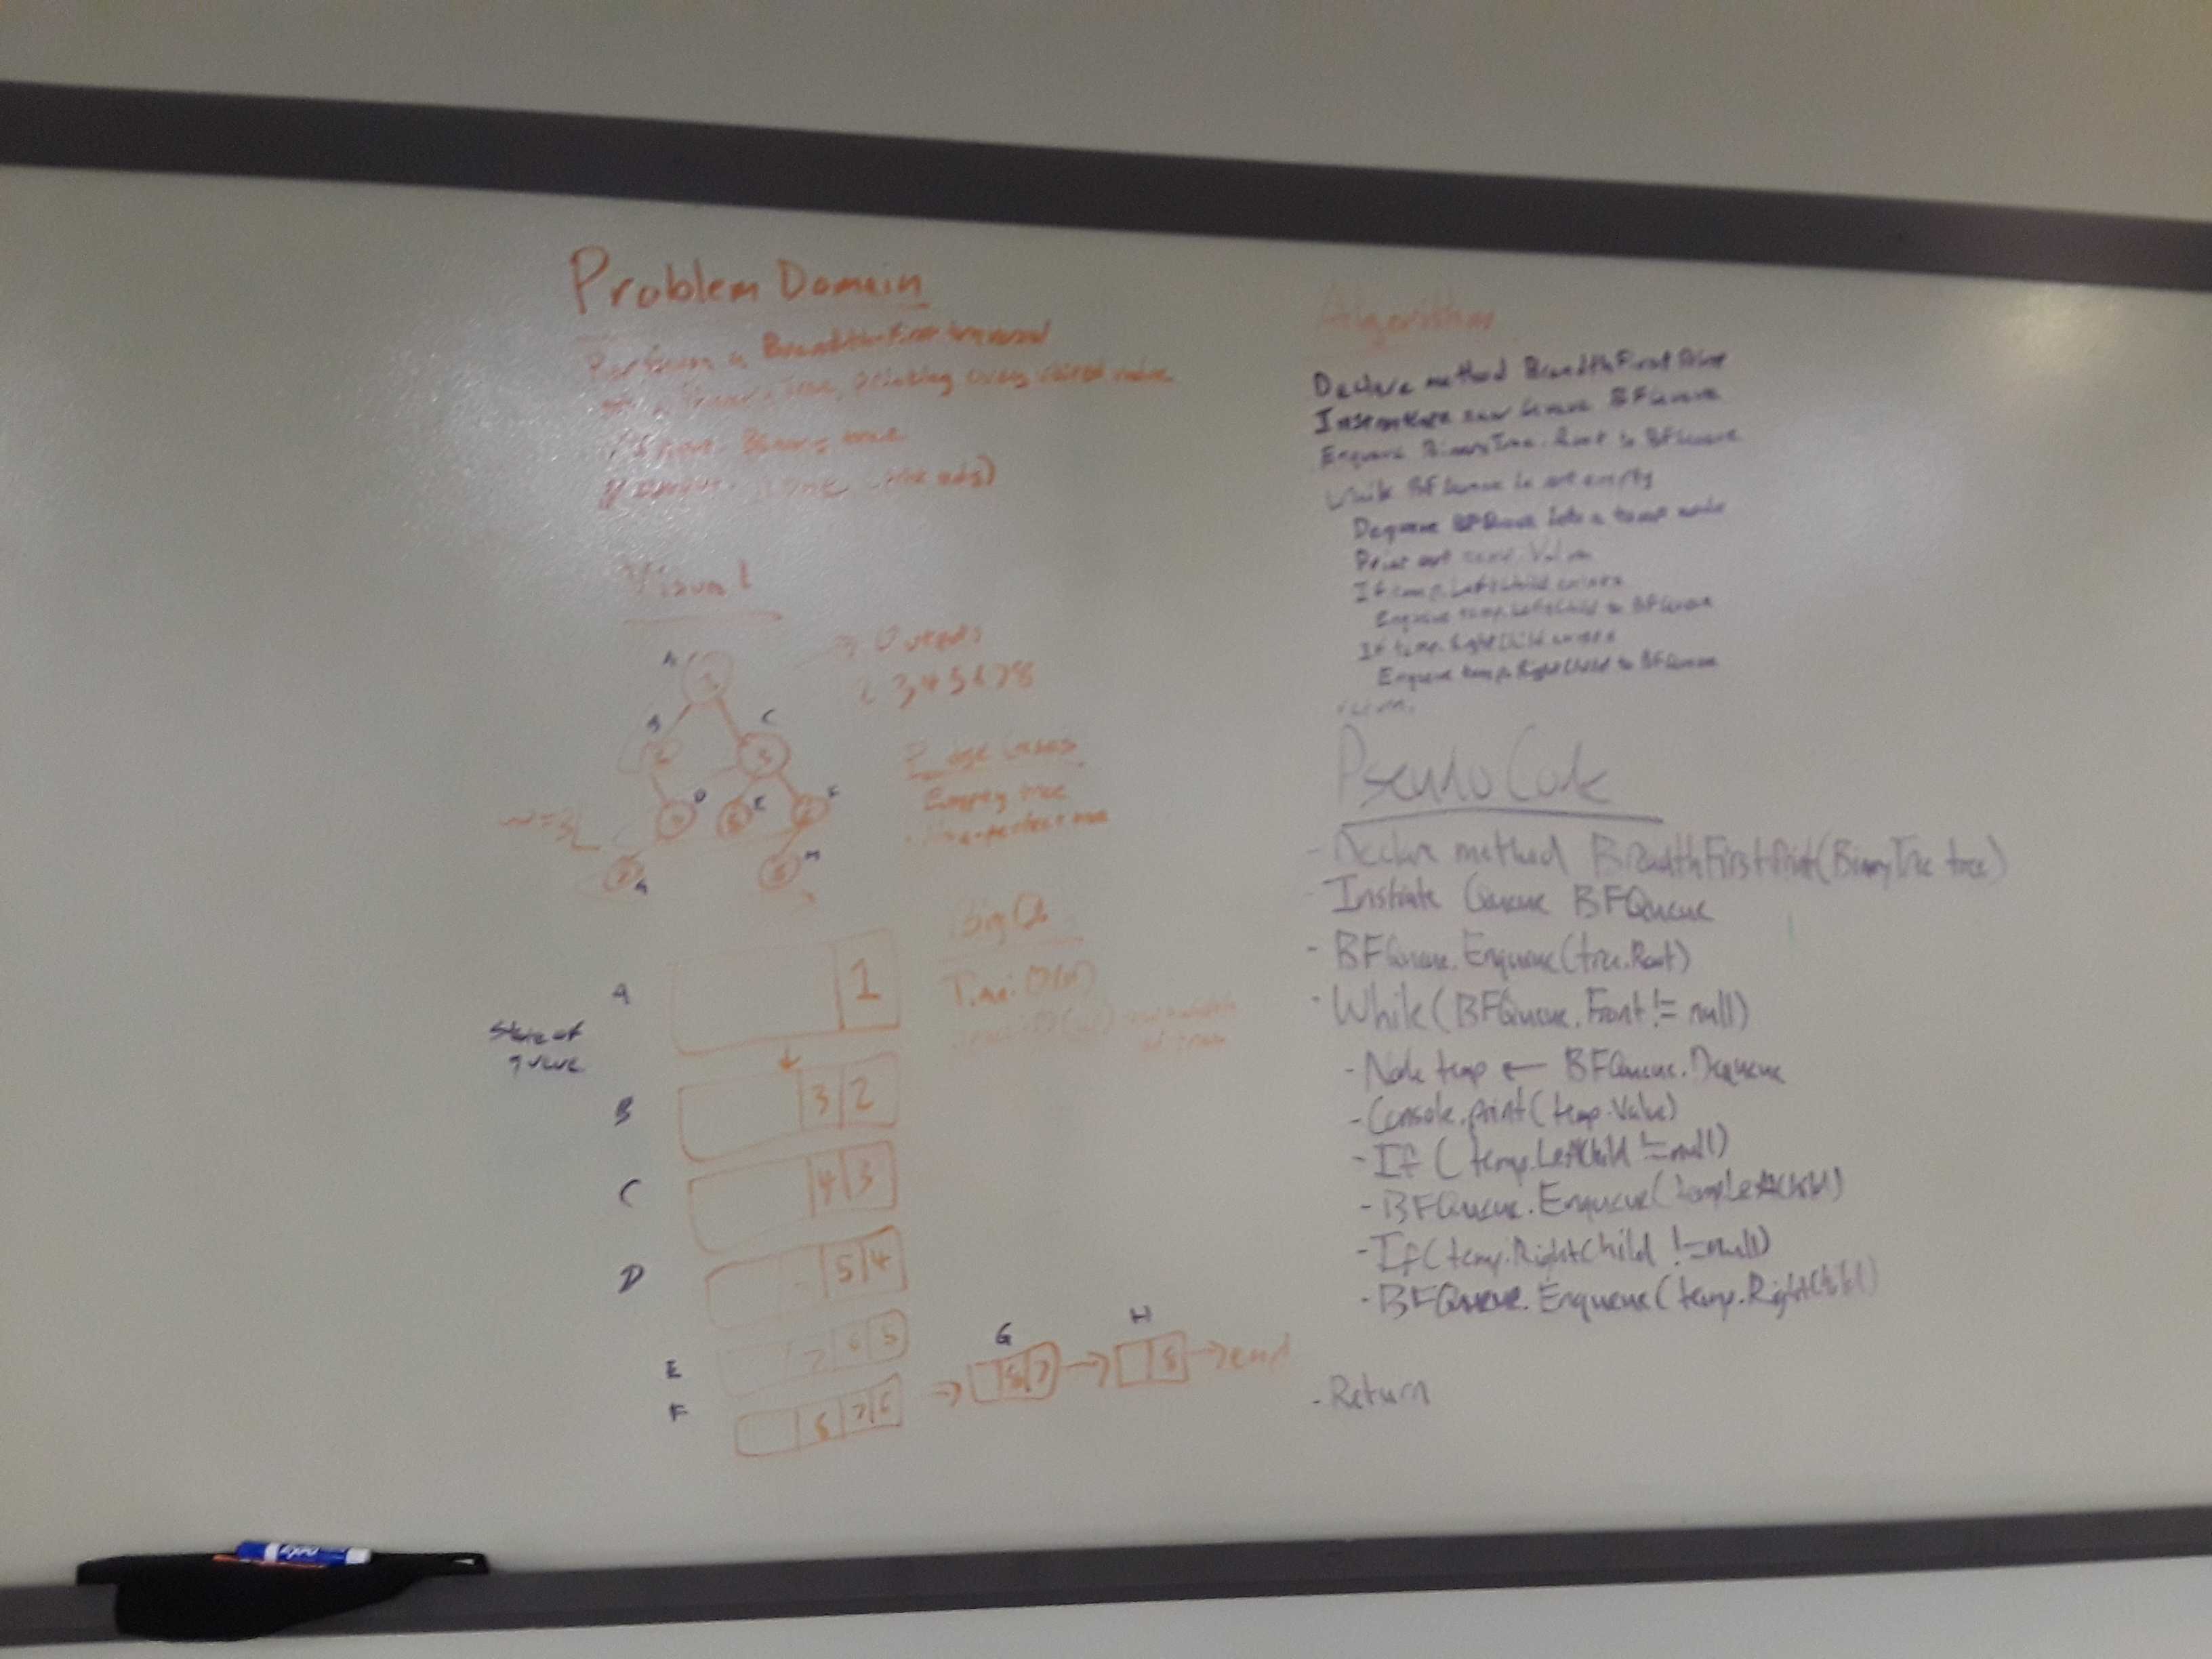 Problem Domain
Perform a Breadth-First traversal
printing every
Binary tree
Visual
Outputs
2 3 4 5 6 7 8
A
B
C
2
3
D
E
F
G
H
8
Edge Cases
Empty tree
Big O
Time: O(n)
of tree
State of
queue
A
1
B
3 2
C
4 3
D
5 4
E
7 6 5
F
8 7 6
G
8 7
H
8
end
Algorithm
Declare method BreadthFirstPrint
Instantiate new Queue BFQueue
Enqueue BinaryTree.Root to BFQueue
While BFQueue is not empty
Dequeue BFQueue into a temp node
Print out temp.Value
If temp.LeftChild exists
Enqueue temp.LeftChild to BFQueue
If temp.RightChild exists
Enqueue temp.RightChild to BFQueue
Pseudo Code
- Declare method BreadthFirstPrint(BinaryTree tree)
Instiate Queue BFQueue
- BFQueue.Enqueue(tree.Root)
- While(BFQueue.Front != null)
- Node temp ← BFQueue.Dequeue
- Console.print(temp.Value)
- If (temp.LeftChild != null)
- BFQueue.Enqueue(temp.LeftChild)
- If(temp.RightChild != null)
- BFQueue.Enqueue(temp.RightChild)
- Return
EXPO